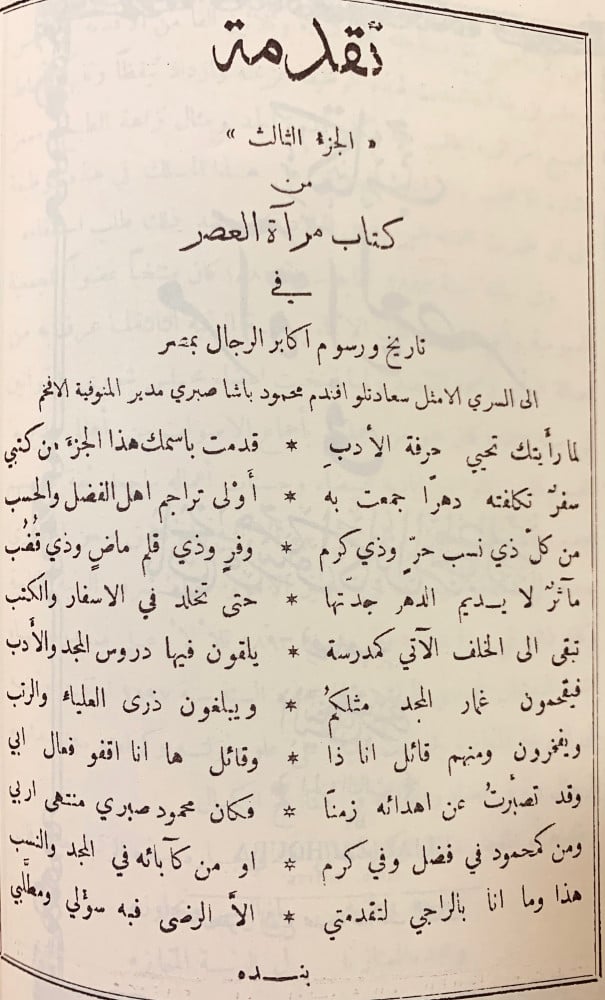 تقدمة
« الجزء الثالث »
من
كتاب مرآة العصر
في
تاريخ ورسوم اكابر الرجال بمصر
الى السري الامثل سعادتلو افندم محمود باشا صبري مدير المنوفية الافخم
لما رأيتك تحيي حرفة الأدبِ * قدمت باسمك هذا الجزءَ من كتبي
سفرٌ تكلفته دهرًا جمعت به * أَوْلى تراجم اهل الفضل والحسب
من كلّ ذي نسب حرٍّ وذي كرم * وفرٍ وذي قلم ماضٍ وذي قُضُب
مآثرٌ لا يديم الدهر جدّتها * حتى تخلد في الاسفار والكتب
تبقى الى الخلف الآتي كمدرسة * يلقون فيها دروس المجد والأدب
فيقحمون غمار المجد مثلكمُ * ويبلغون ذرى العلياء والرتب
ويفخرون ومنهم قائل انا ذا * وقائل ها انا اقفو فعال ابي
وقد تصبَّرتُ عن اهدائه زمنًا * فكان محمود صبري منتهى اربي
ومن كمحمود في فضل وفي كرم * او من كآبائه في المجد والنسب
هذا وما انا بالراجي لتقدمتي * الاَّ الرضى فيه سؤلي ومطلَبي
بنـــده